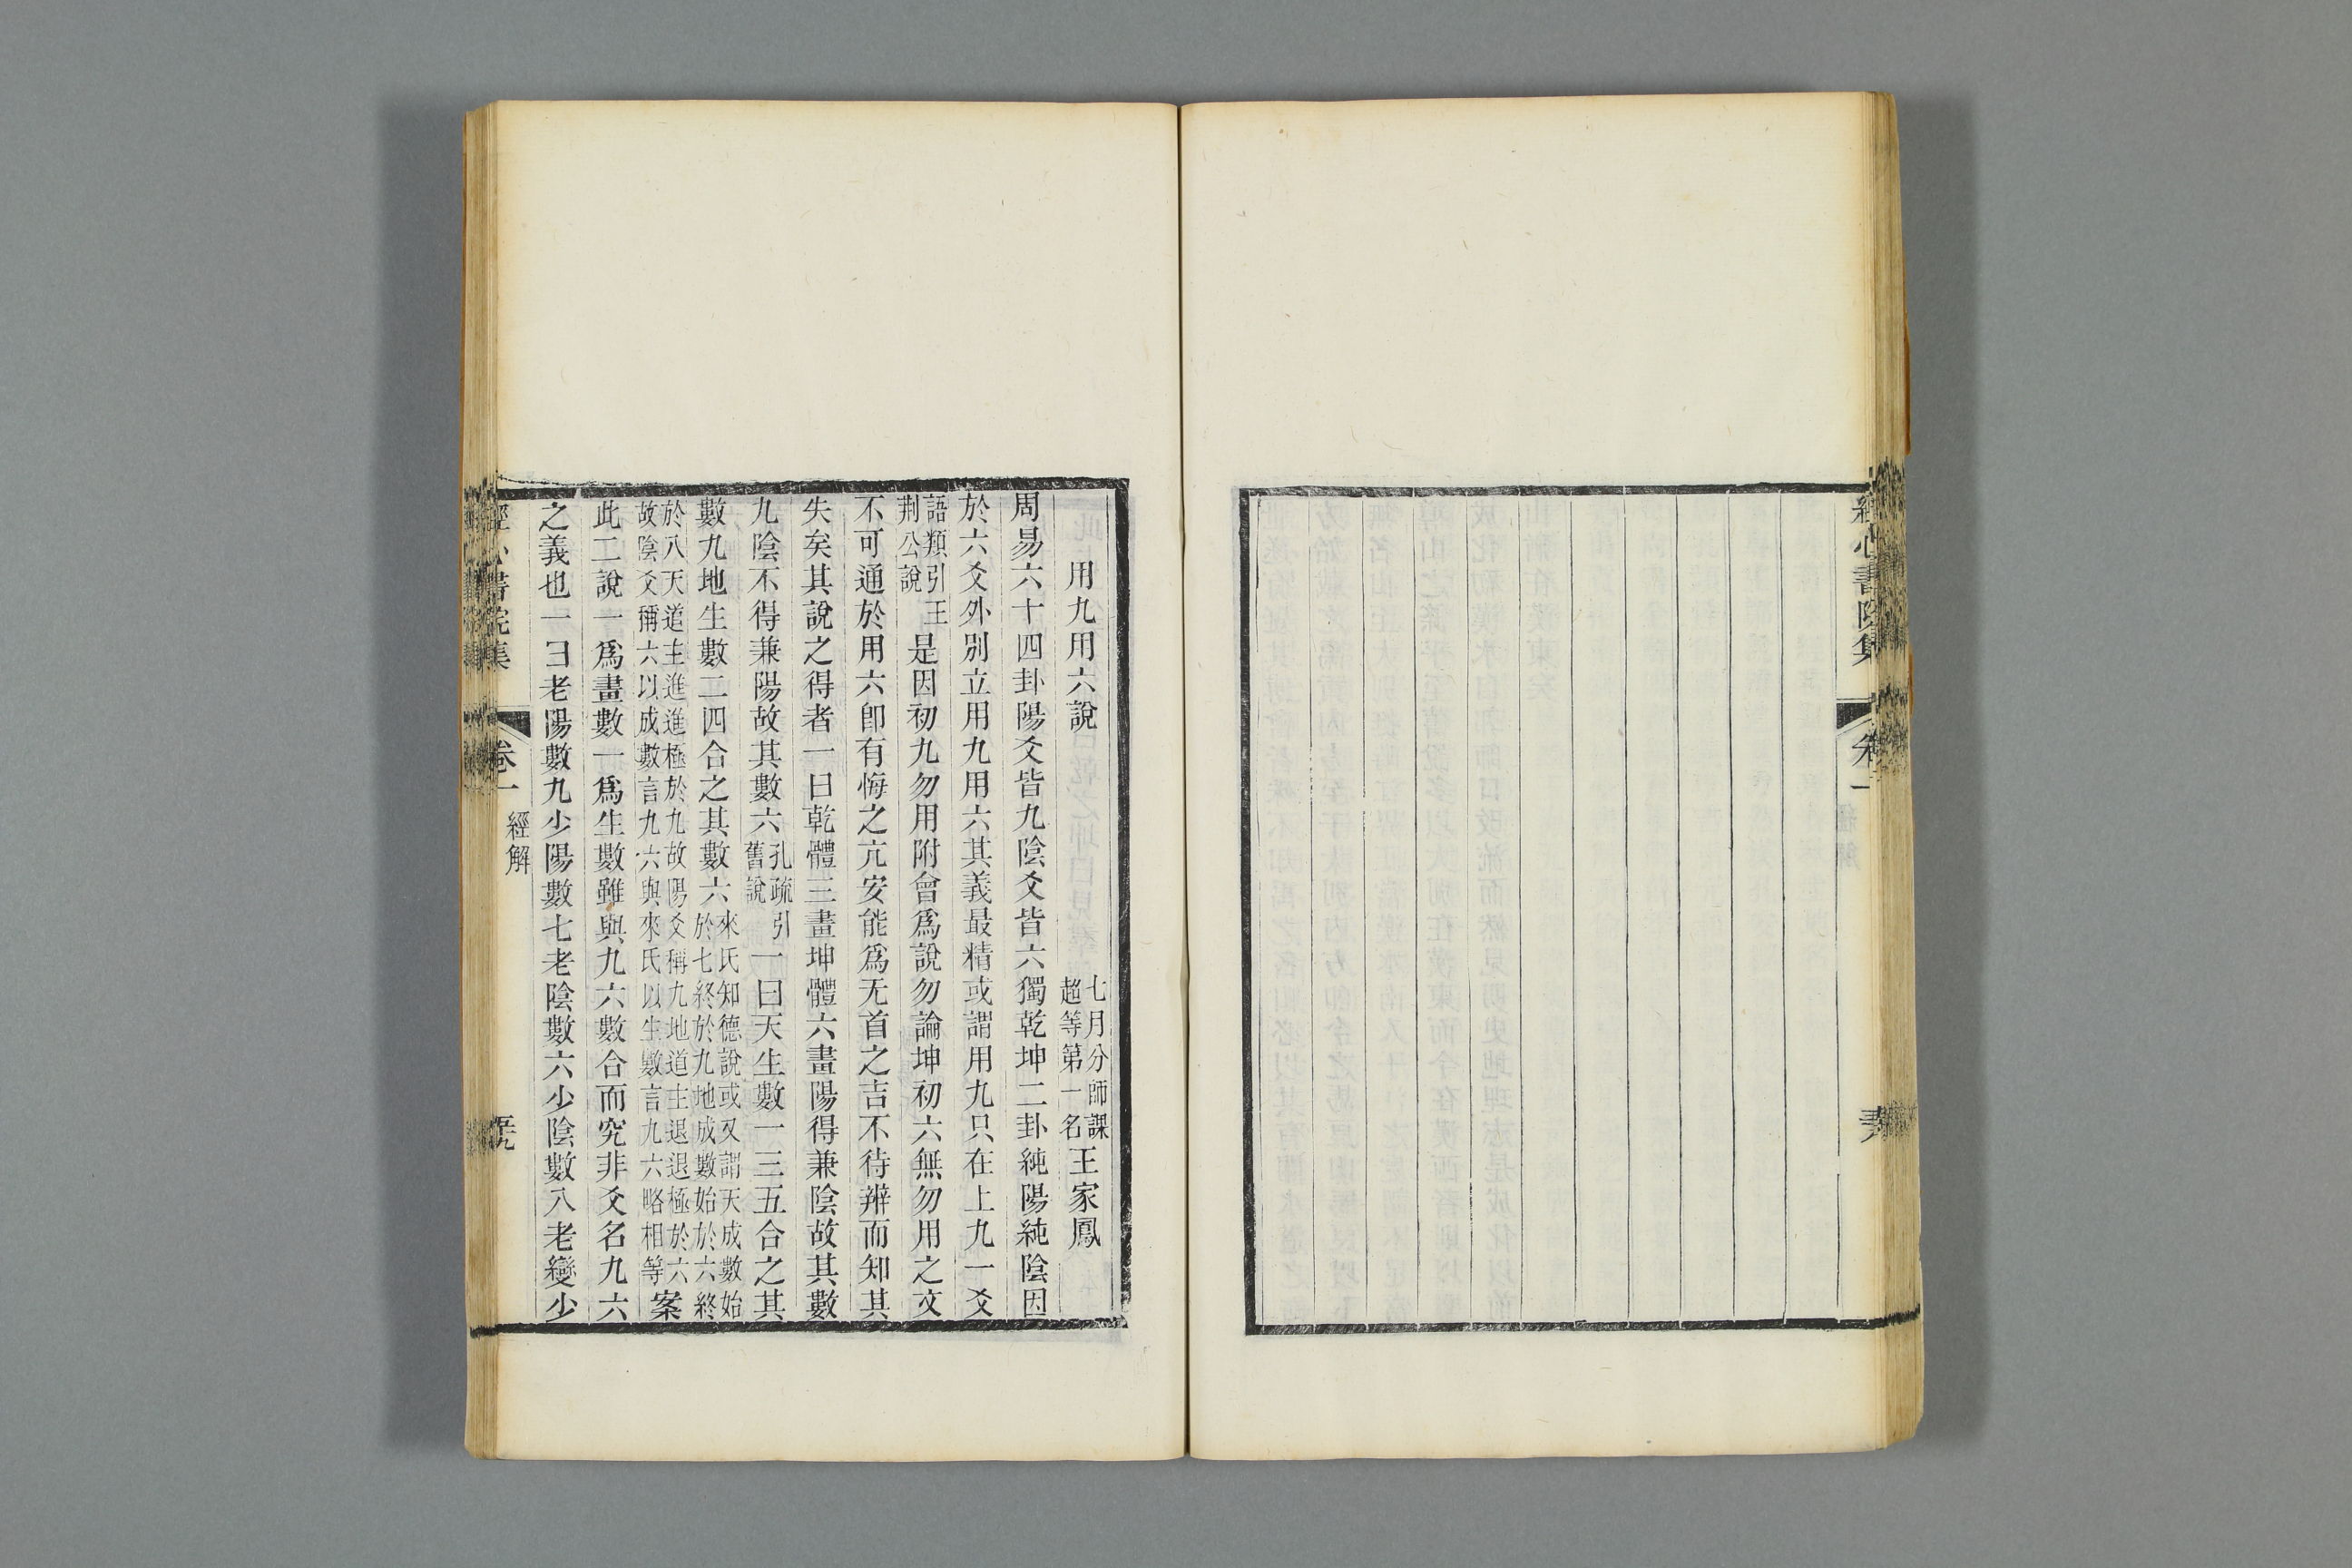 經心書院集
卷一
用九用六說
七月分師課
超等第一名
王家鳳
周易六十四卦陽爻皆九陰爻皆六獨乾坤二卦純陽純陰因
於六爻外別立用九用六其義最精或謂用九只在上九一爻
語類引王
荆公說
是因初九勿用附會爲說勿論坤初六無勿用之文
不可通於用六卽有悔之亢安能爲无首之吉不待辨而知其
失矣其說之得者一曰乾體三畫坤體六畫陽得兼陰故其數
九陰不得兼陽故其數六
孔疏引
舊說
一曰天生數一三五合之其
數九地生數二四合之其數六
來氏知德說或又謂天成數始
於七終於九地成數始於六終
於八天道主進進極於九故陽爻稱九地道主退退極於六
故陰爻稱六以成數言九六與來氏以生數言九六略相等
案
此二說一爲畫數一爲生數雖與九六數合而究非爻名九六
之義也一曰老陽數九少陽數七老陰數六少陰數八老變少
經心書院集
卷一
經解